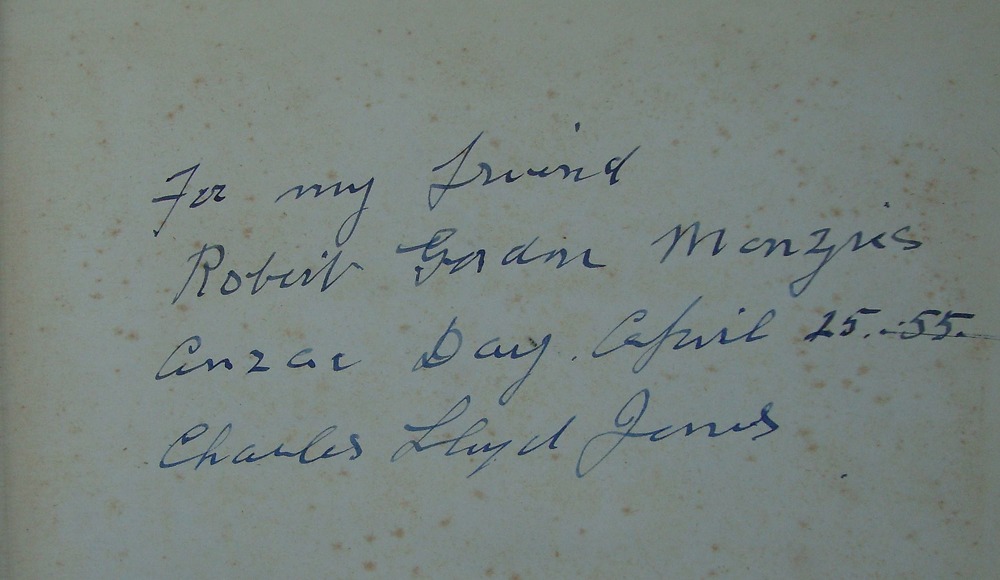 For my friend
Robert Gordon Menzies
Anzac Day. April 25.-55.
Charles Lloyd Jones